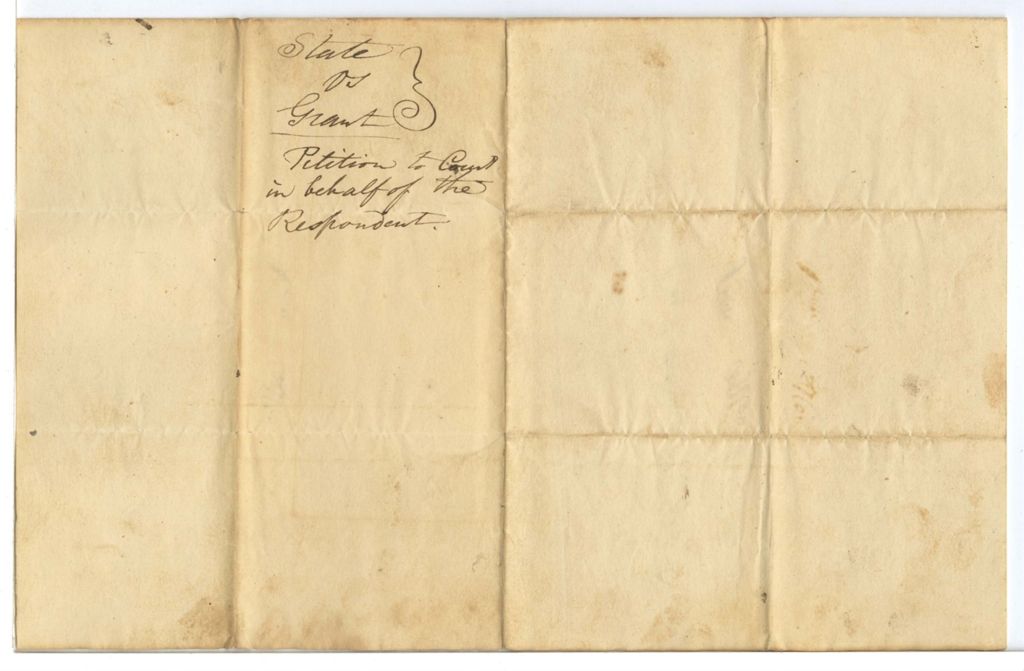 State
vs
Grant
Petition to Court
in behalf of the
Respondent.